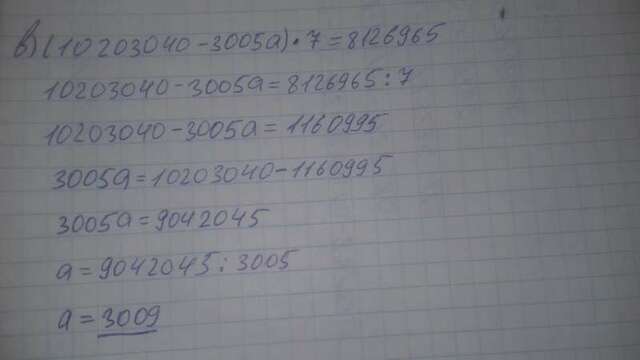 в) (10203040-3005a)•7=8126965
10203040-3005a=8126965:7
10203040-3005a=1160995
3005a=10203040-1160995
3005a=9042045
a=9042045:3005
a=3009